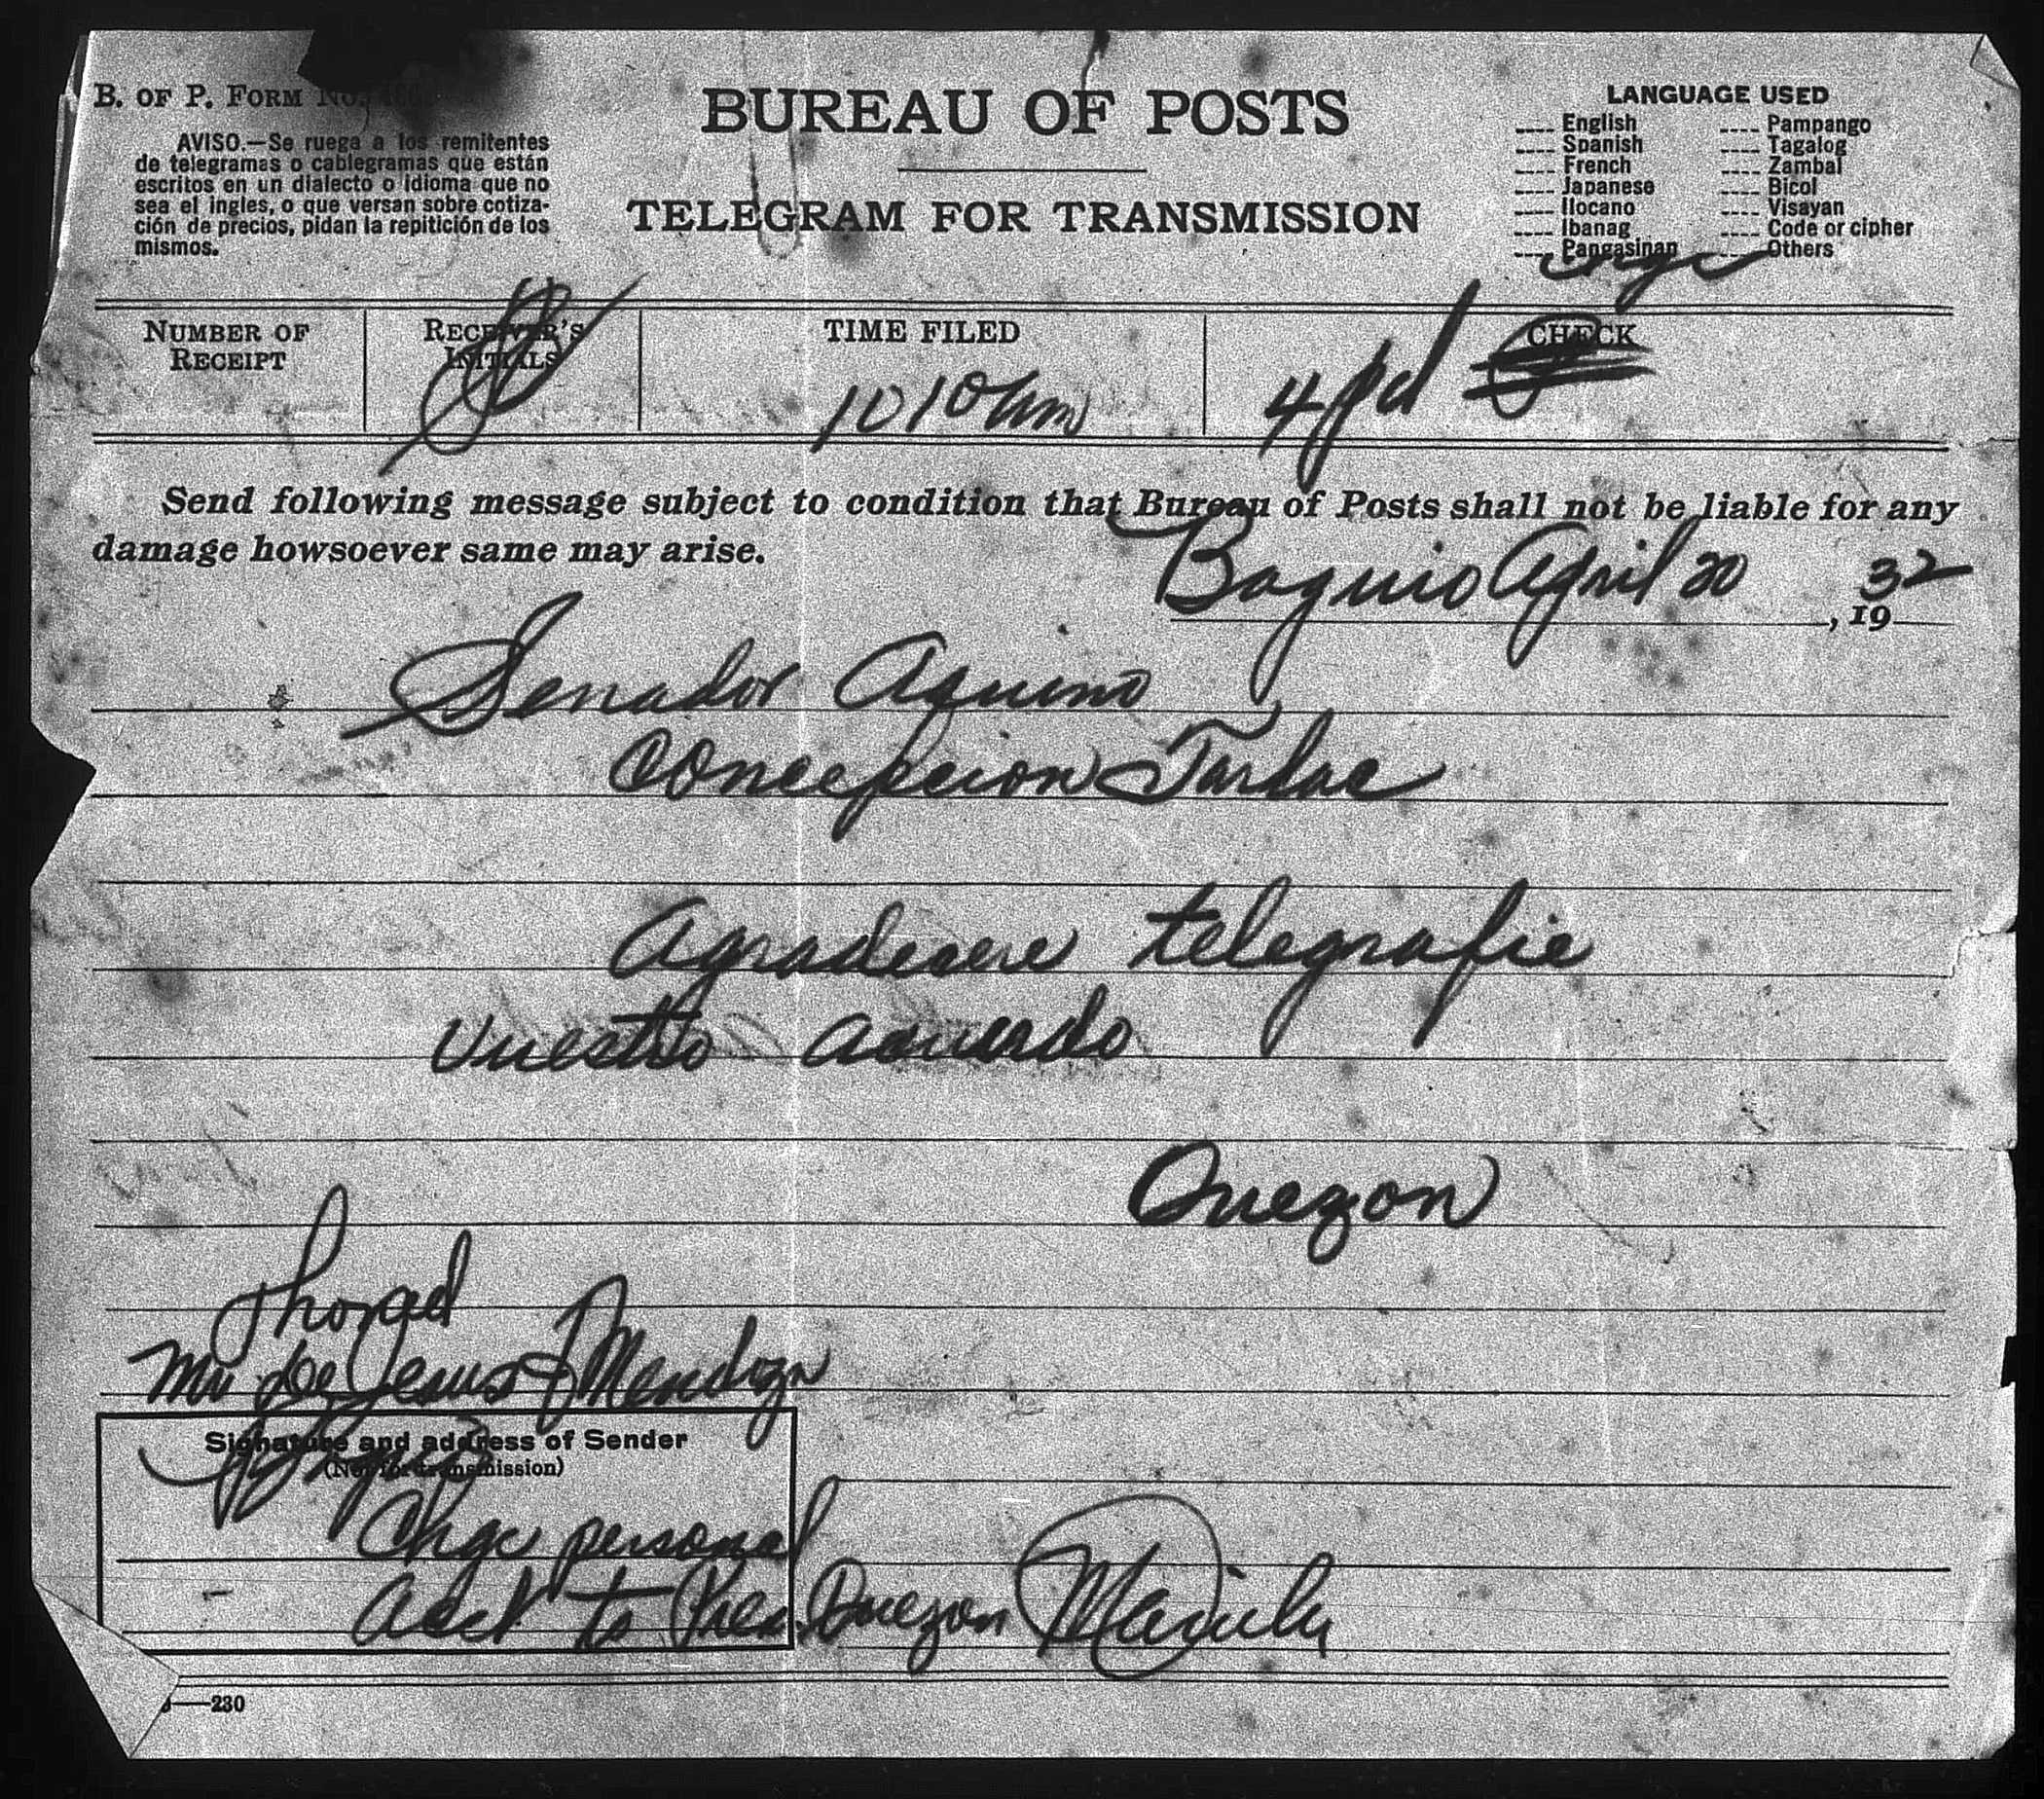 B. OF P. FORM No.
AVISO.—Se ruega a los remitentes
de telegramas o cablegramas que están
escritos en un dialecto o idioma que no
sea el ingles, o que versan sobre cotiza-
ción de precios, pidan la repitición de los
mismos.
BUREAU OF POSTS
TELEGRAM FOR TRANSMISSION
LANGUAGE USED
---- English ---- Pampango
---- Spanish ---- Tagalog
---- French ---- Zambal
---- Japanese ---- Bicol
---- Ilocano ---- Visayan
---- Ibanag ---- Code or cipher
---- Pangasinan ---- Others
NUMBER OF
RECEIPT
RECEIVER'S
INITIALS
TIME FILED
1010am
CHECK
4 pd
Send following message subject to condition that Bureau of Posts shall not be liable for any
damage howsoever same may arise.
Baguio April 20, 1932
Senador Aquino
Concepcion Tarlac
Agradecere telegrafie
vuestro acuerdo
Quezon
Phoned
Mr De Jesus & Mendoza
Signature and address of Sender
(Not for transmission)
Chge personal
acct to Pres. Quezon Manila
—230